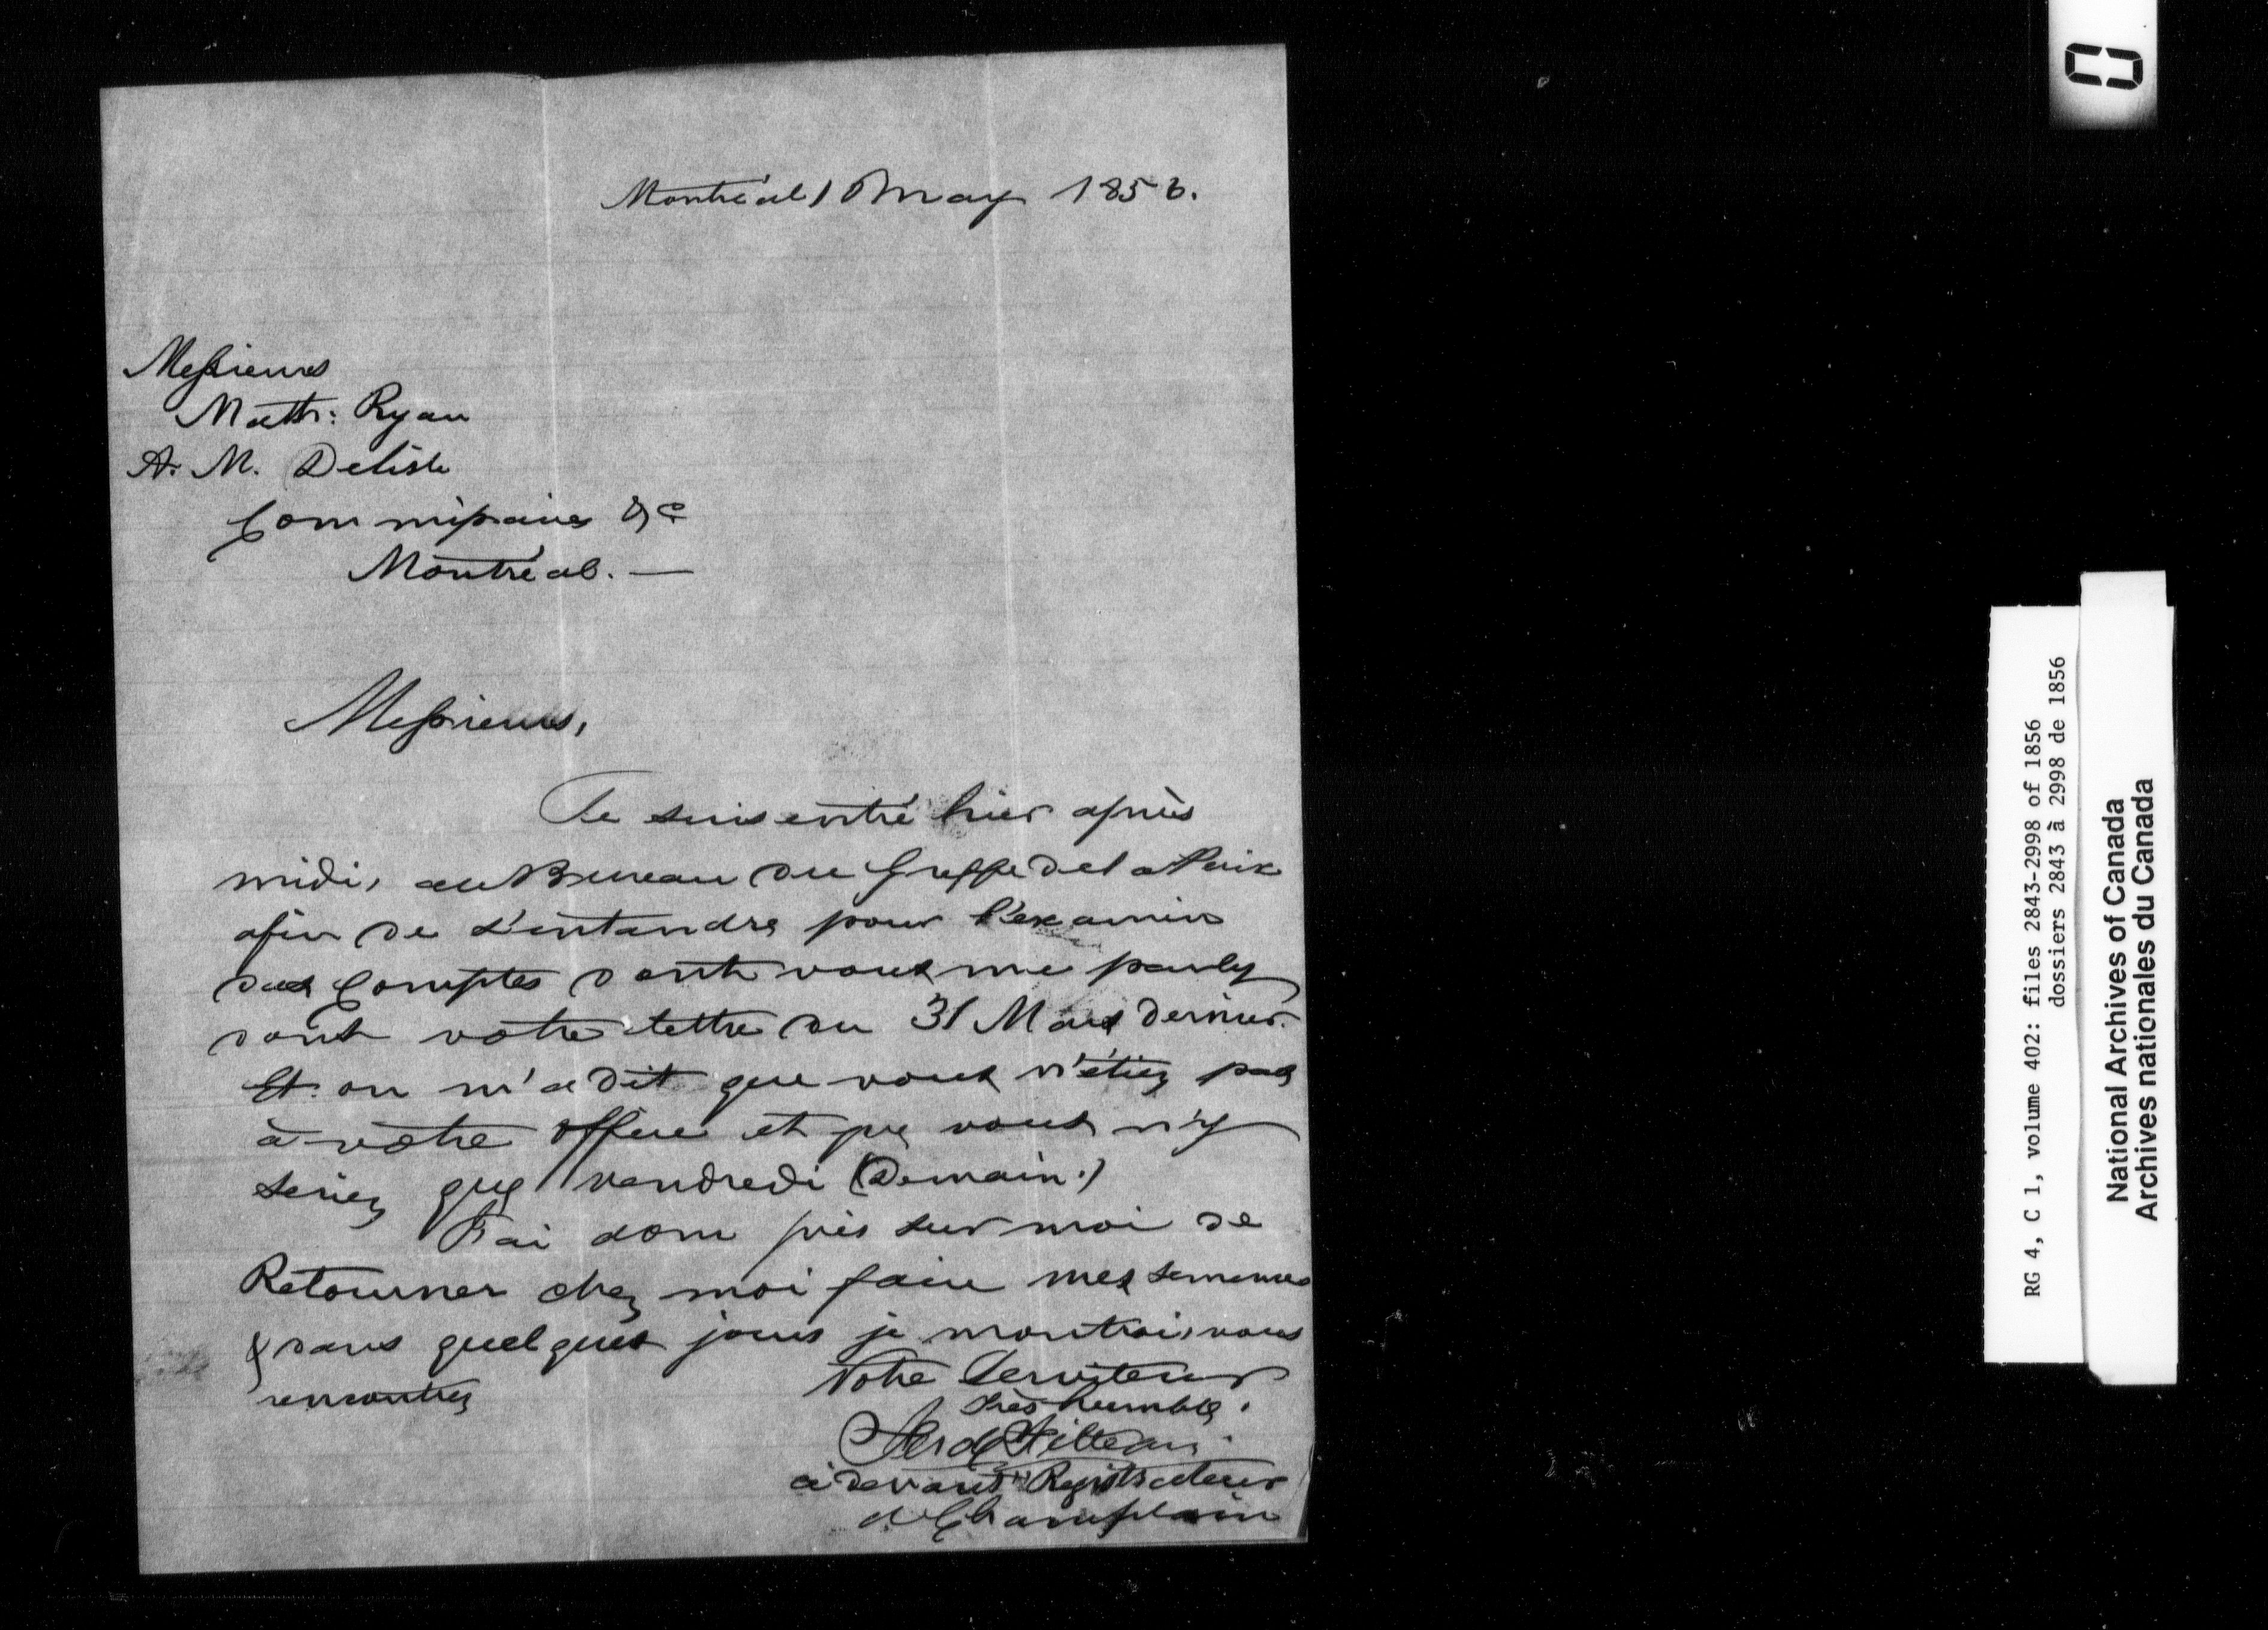 Montréal 1 May 1856.
Messieurs
Matth: Ryan
A. M. Delisle
Commissaires &c
Montréal. —
Messieurs,
Je suis entré hier après
midi, au Bureau du Greffe de la Paix
afin de s'entandre pour l'examin
des Comptes dont vous me parlez
dans votre lettre du 31 Mars dernier.
Et on m'a dit que vous n'étiez pas
à votre office et que vous n'y
seriez que vendredi (Demain.)
J'ai donc pris sur moi de
Retourner chez moi faire mes semences
& dans quelques jours je montrai, vous
rencontrez
Votre Serviteur
très humble.
Filteau
ci devant Registrateur
de Champlain
RG 4, C 1, volume 402: files 2843-2998 of 1856
dossiers 2843 à 2998 de 1856
National Archives of Canada
Archives nationales du Canada